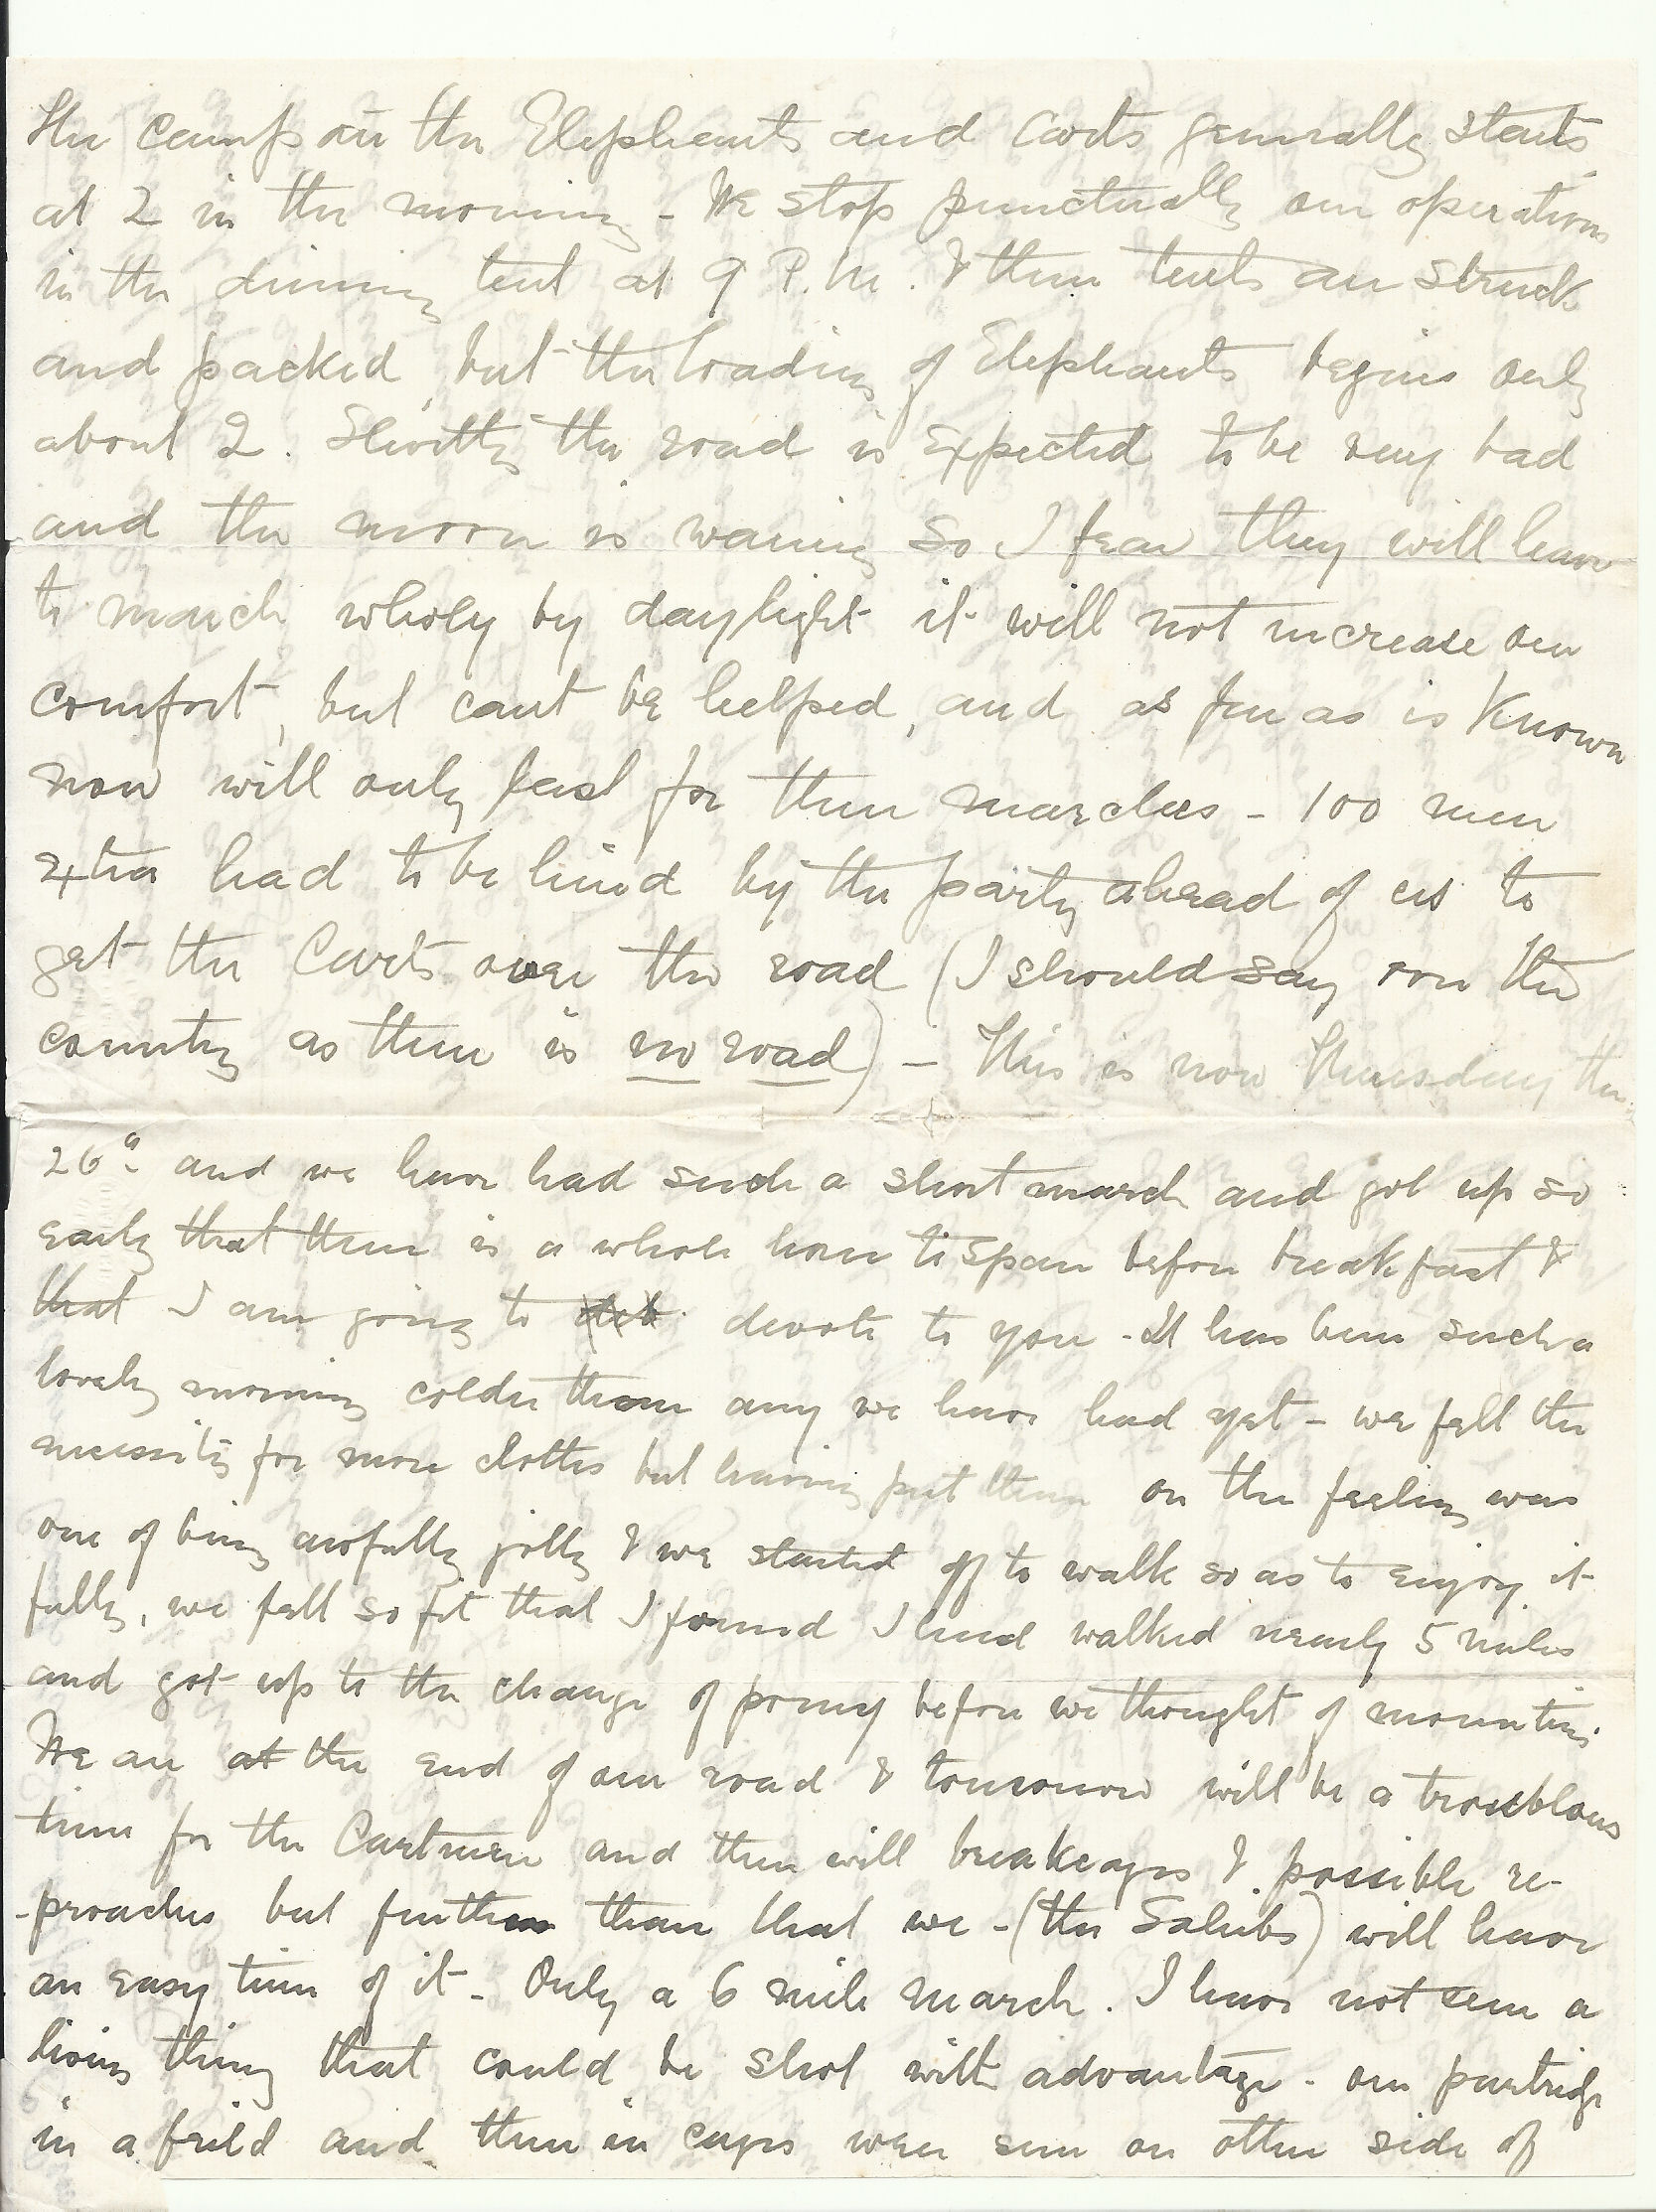 the camp on the Elephants and carts generally starts
at 2 in the morning - We stop punctually our operations
in the dinning tent at 9 P.M. & then tents are struck
and packed, but the loading of Elephants begins only
about 2. Shortly the road is expected to be very bad
and the moon is waning so I fear they will have
to march wholy by daylight it will not increase our
comfort, but cant be helped, and as far as is known
now will only last for three marches - 100 men
extra had to be hired by the party ahead of us to
get the Carts over the road (I should say over the
country as there is no road) - This is now Thursday the
26th and we have had such a short march and got up so
early that there is a whole hour to spare before breakfast &
that I am going to devote to you - It has been such a
lovely morning colder than any we have had yet - we felt the
necessity for more clothes but having put them on the feeling was
one of being awfully jolly & we started off to walk so as to enjoy it
fully, we felt so fit that I found I had walked nearly 5 miles
and got up to the change of poney before we thought of mounting.
We are at the end of our road & tomorrow will be a troublous
time for the Cartmen and there will breakages & possible re-
-proaches but further than that we - (the Sahibs) will have
an easy time of it - Only a 6 mile march. I have not seen a
living thing that could be shot with advantage - one partridge
in a feild and three in cages were seen on other side of